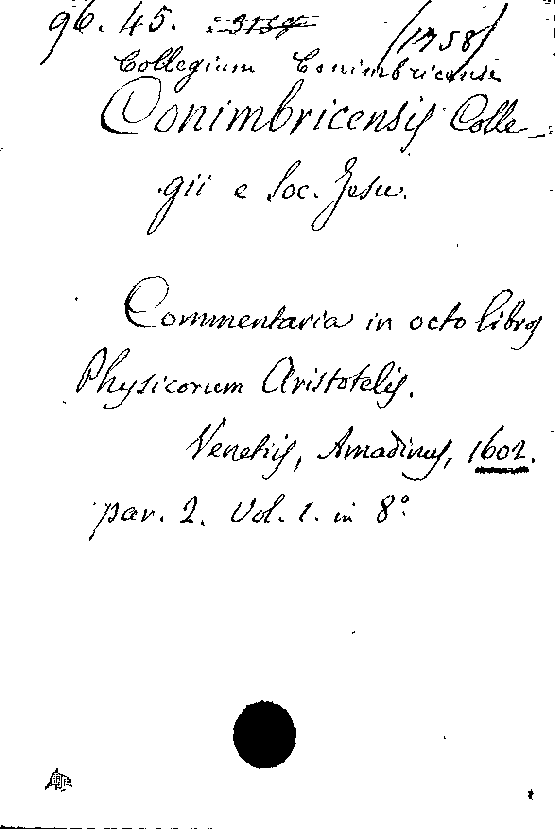 96. 45. 3137 (1958)
Collegium Conimbricense
Conimbricensis Colle-
gii e Soc. Jesu.
Commentaria in octo libros
Physicorum Aristotelis.
Venetiis, Amadinus, 1602.
par. 2. Vol. 1. in 8°